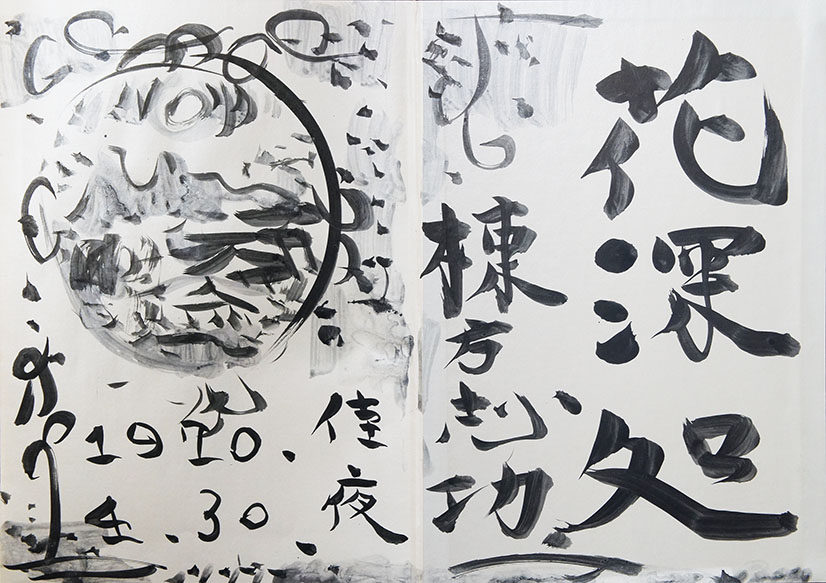 花深処
棟方志功
佳夜
1970.
4.30.